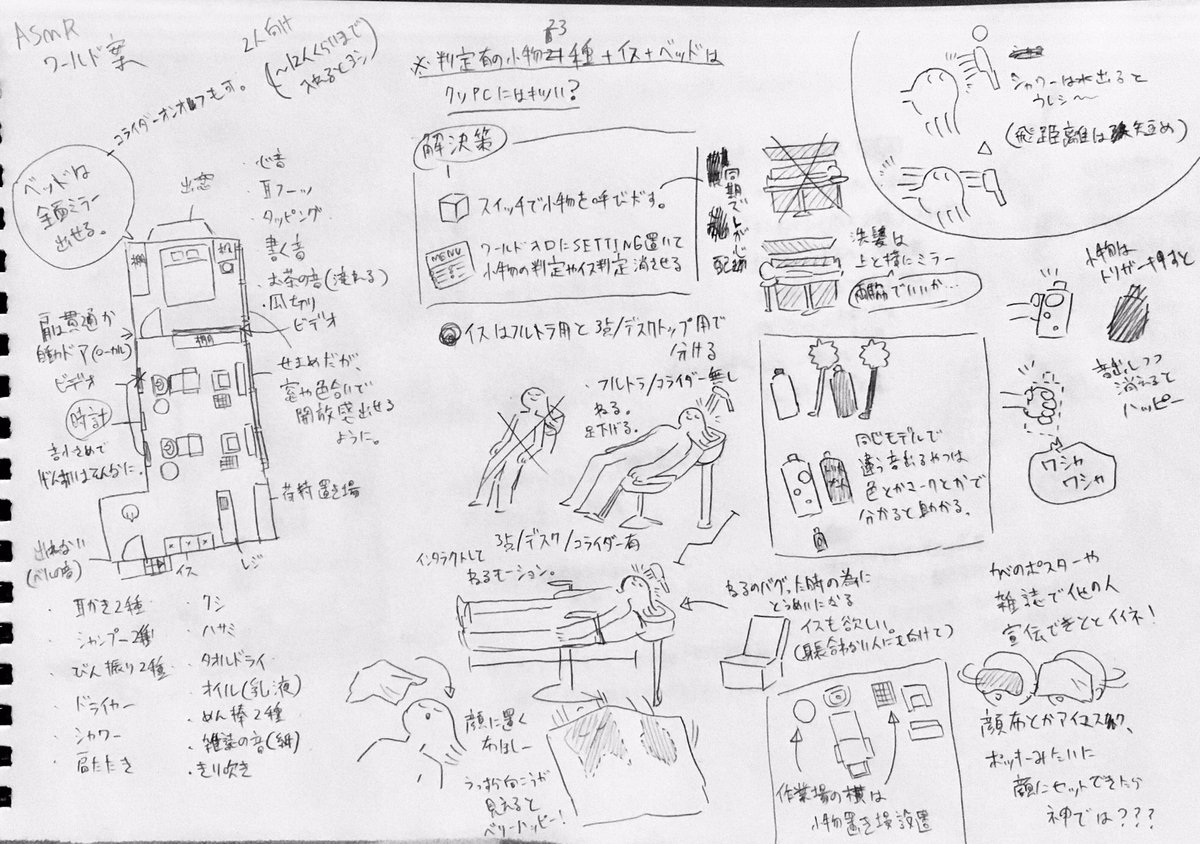 ASMR
ワールド案
2人向け
(~12人くらいまで
入れるとヨシ)
コライダーオンオフもす。
ベッドは
全面ミラー
出せる。
出窓
棚
棚
・心音
・耳フーッ
・タッピング
・書く音
・お茶の音(淹れる)
・爪切り
ビデオ
肩は貫通か
自動ドア(ローカル)
ビデオ
時計
音小さめで
せまめだが、
窓や色合いで
開放感出せる
ように。
荷物置き場
出れない
(ベルの音)
イス
レジ
・耳かき2種
・シャンプー2種
・びん振り2種
・ドライヤー
・シャワー
・肩たたき
・クシ
・ハサミ
・タオルドライ
・オイル(乳液)
・めん棒2種
・雑誌の音(紙)
・きり吹き
※判定有の小物23種+イス+ベッドは
クソPCにはキツい?
解決策
スイッチで小物を呼びだす。
MENU
ワールド入口にSETTING置いて
小物の判定やイス判定消させる
同期で
配線
イスはフルトラ用と3点/デスクトップ用で
分ける
・フルトラ/コライダー無し
ねる。
足下げる。
3点/デスク/コライダー有
インタラクトして
ねるモーション。
顔に置く
うっすら向こうが
見えると
ベリーハッピー!
シャワーは水出ると
ウレシ~
(飛距離は短め)
洗髪は
上と横にミラー
両脇でいいか…
小物は
トリガー押すと
音出しつつ
消えると
ハッピー
ワシャ
ワシャ
同じモデルで
違う音出るやつは
色とかマークとかで
分かると助かる。
ねるのバグった時の為に
とうめいになる
イスも欲しい。
(身長合わない人にも向けて)
作業場の横は
小物置き場設置
かべのポスターや
雑誌で他の人
宣伝できるとイイネ!
顔布とかアイマスク、
ポッキーみたいに
顔にセットできたら
神では???